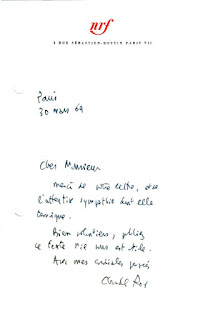 nrf
5 RUE SÉBASTIEN-BOTTIN PARIS VII
Paris
30 mars 69
Cher Monsieur
merci de votre lettre, de
l'attentive sympathie dont elle
témoigne.
Bien volontiers, publiez
ce texte s'il vous est utile.
Avec mes cordiales pensées
Claude Roy